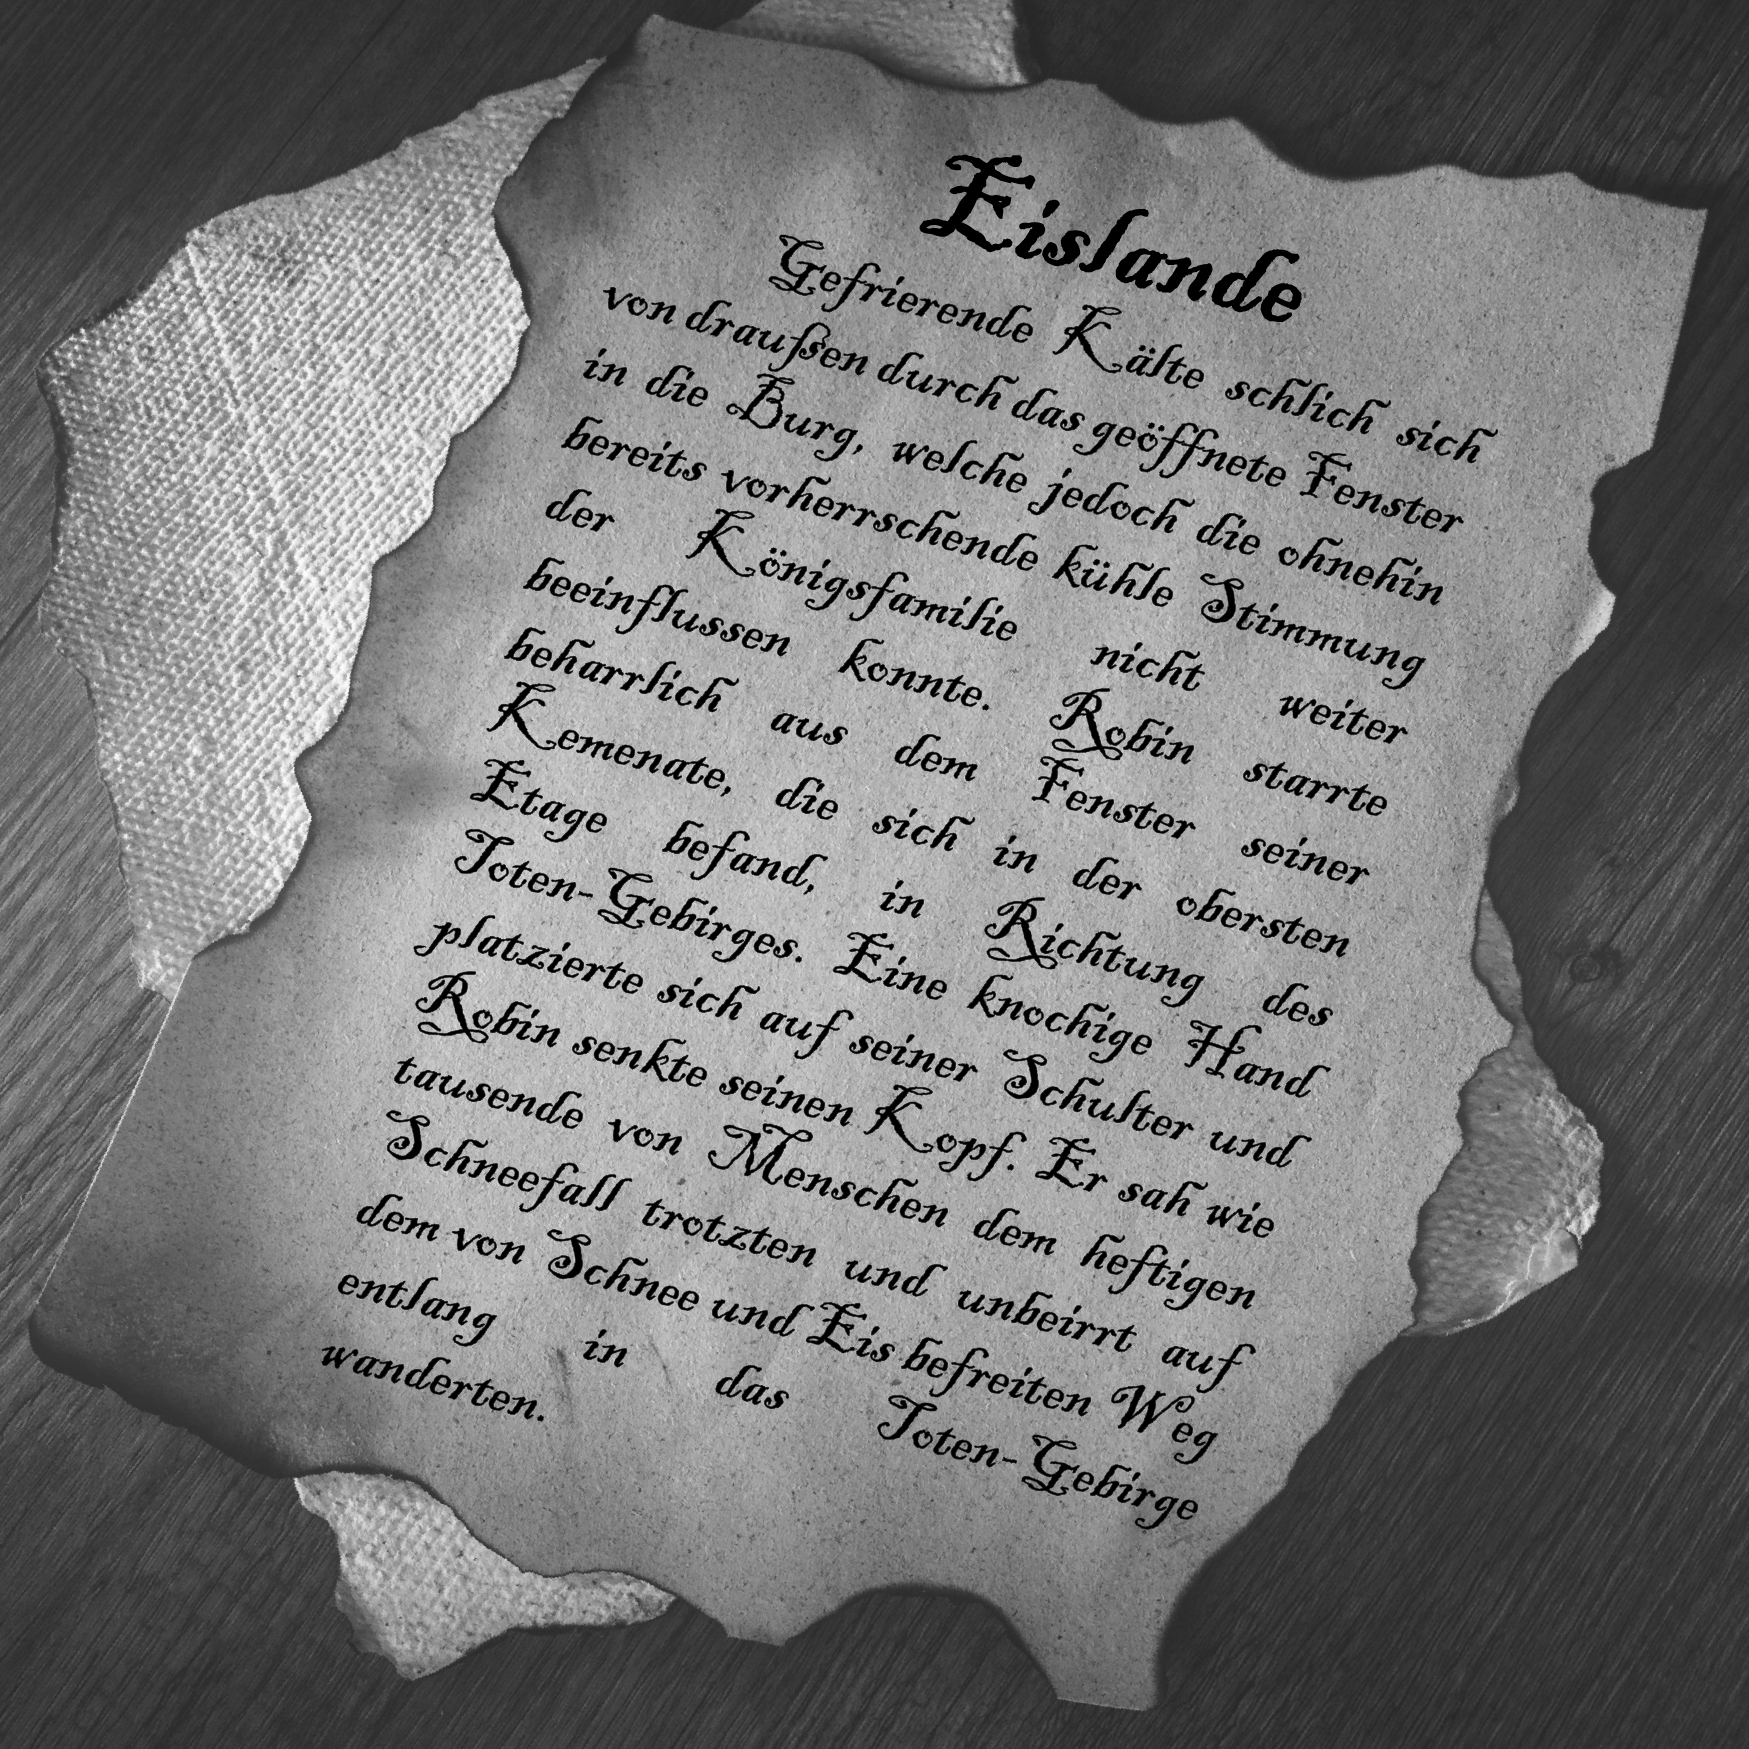 Eislande
Gefrierende Kälte schlich sich
von draußen durch das geöffnete Fenster
in die Burg, welche jedoch die ohnehin
bereits vorherrschende kühle Stimmung
der Königsfamilie nicht weiter
beeinflussen konnte. Robin starrte
beharrlich aus dem Fenster seiner
Kemenate, die sich in der obersten
Etage befand, in Richtung des
Toten-Gebirges. Eine knochige Hand
platzierte sich auf seiner Schulter und
Robin senkte seinen Kopf. Er sah wie
tausende von Menschen dem heftigen
Schneefall trotzten und unbeirrt auf
dem von Schnee und Eis befreiten Weg
entlang in das Toten-Gebirge
wanderten.